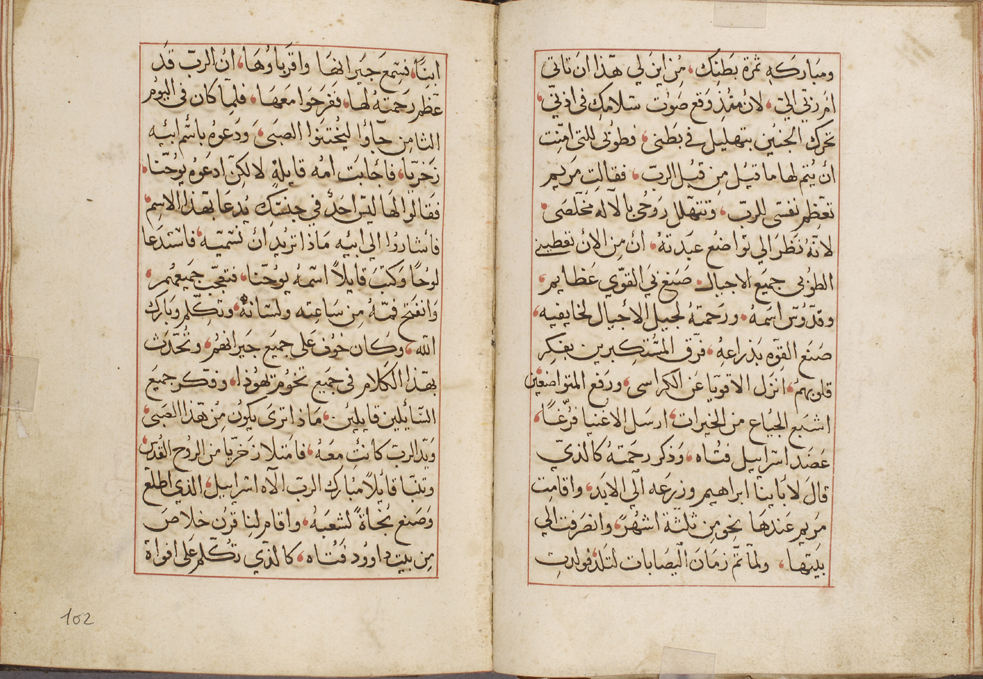 ومباركه ثمرة بطنك، من اين لي هذا ان تاتي
ام ربي الي، لان منذ وقع صوت سلامك في اذني،
تحرك الجنين بتهليل في بطني، وطوبى للتي امنت
ان يتم لها ما قيل من قبل الرب، فقالت مريم
تعظم نفسي للرب، وتتهلل روحي بالاله مخلصي،
لانه نظر الي تواضع عبدته، ان من الان تعطيني
الطوبى جميع الاجيال، صنع بي القوي عظايم،
وقدوس اسمه، ورحمته لجيل الاجيال لخايفيه،
صنع القوه بذراعه، فرق المستكبرين بفكر
قلوبهم، انزل الاقويا عن الكراسي، ورفع المتواضعين
اشبع الجياع من الخيرات، ارسل الاغنيا فرغا،
عضد اسراييل فتاه، وذكر رحمته كالذي
قال لابايينا ابراهيم وزرعه الي الابد، واقامت
مريم عندها نحو من ثلثة اشهر، وانصرفت الي
بيتها، ولما تم زمان اليصابات لتلد، فولدت
ابنا، فسمع جيرانها واقرباوها، ان الرب قد
عظم رحمته لها، ففرحوا معها، فلما كان في اليوم
الثامن جاوا ليختنوا الصبي، ودعوه باسم ابيه
زخريا، فاجابت امه قايلة لا لكن ادعوه يوحنا،
فقالوا لها ليس احد في جنسك يدعا بهذا الاسم،
فاشاروا الي ابيه ماذا تريد ان تسميه، فاستدعا
لوحا وكتب قايلا اسمه يوحنا، فتعجب جميعهم،
وانفتح فمه من ساعته ولسانه، وتكلم وبارك
الله، وكان خوف علي جميع جيرانهم، وتحدث
بهذا الكلام في جميع تخوم يهودا، وفكر جميع
السايلين قايلين، ماذا ترى يكون من هذا الصبي
ويد الرب كانت معه، فامتلا زخريا من الروح القدس
وتنبا قايلا مبارك الرب الاه اسراييل، الذي اطلع
وصنع نجاة لشعبه، واقام لنا قرن خلاص
من بيت داوود فتاه، كالذي تكلم على افواه
102